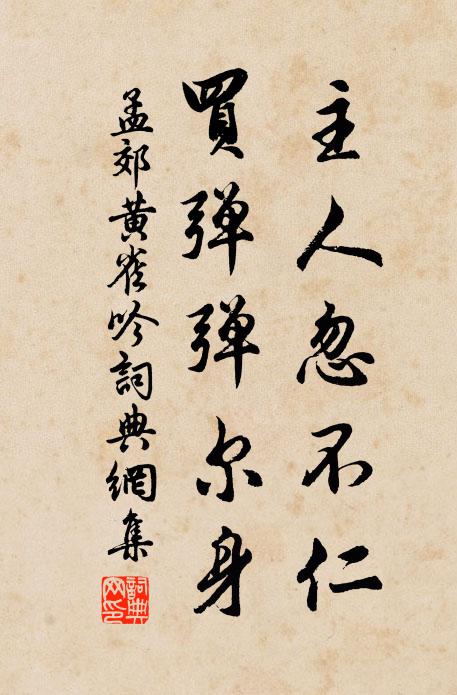 主人忽不仁
買弹弹尔身
孟郊黄雀吟詞典網集
詞典网印